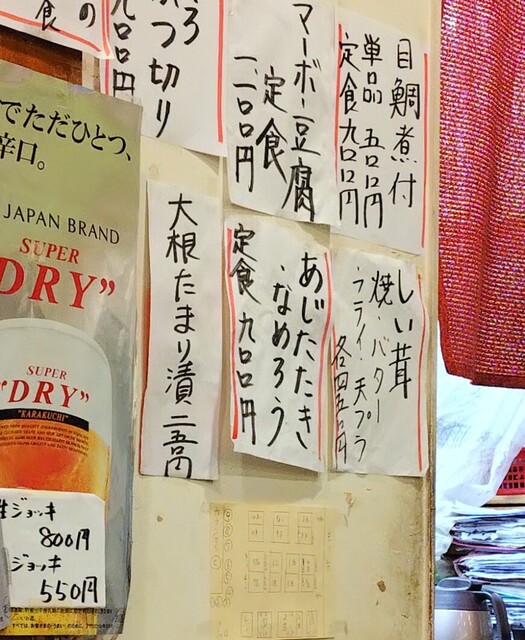 目鯛煮付
単品 五〇〇円
定食 九〇〇円
マーボー豆腐
定食
一一〇〇円
ぶつ切り
九〇〇円
の
食
しい茸
焼・バター
・フライ・天プラ
各四五〇円
あじたたき
・なめろう
定食 九〇〇円
大根たまり漬 二五〇円
でただひとつ、
辛口。
JAPAN BRAND
SUPER
"DRY"
SUPER
"DRY"
"KARAKUCHI"
生ジョッキ
800円
ジョッキ
550円